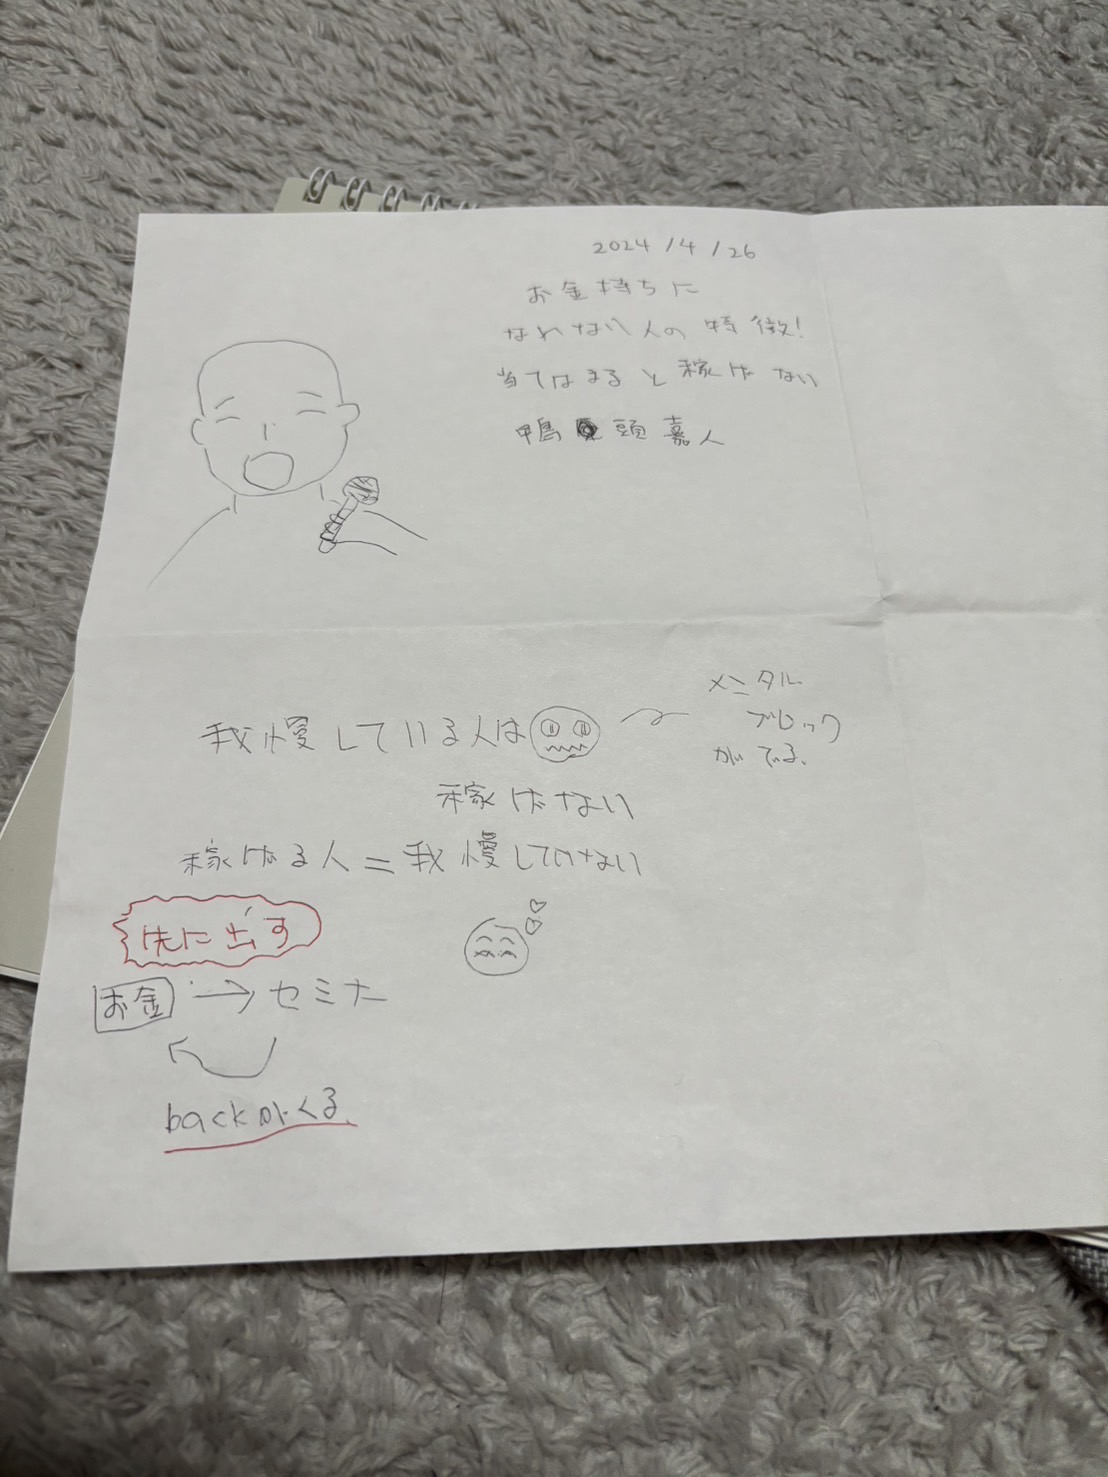 2024/4/26
お金持ちに
なれない人の特徴!
当てはまると稼げない
鴨頭嘉人
我慢している人は
メンタル
ブロック
がでる、
稼げない
稼げる人=我慢していない
先に出す
お金→セミナー
backがくる